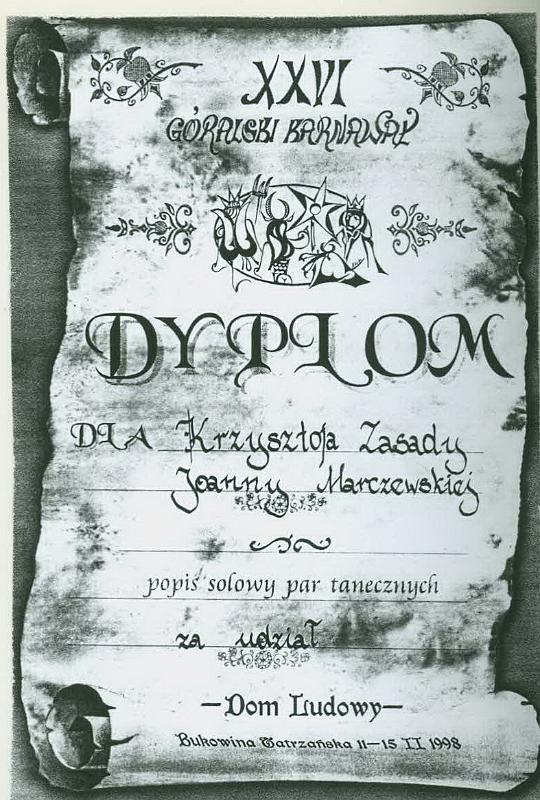 XXVI
GÓRALSKI KARNAWAŁ
DYPLOM
DLA Krzysztofa Zasady
Joanny Marczewskiej
popis solowy par tanecznych
za udział
—Dom Ludowy—
Bukowina Tatrzańska 11—15 II 1998